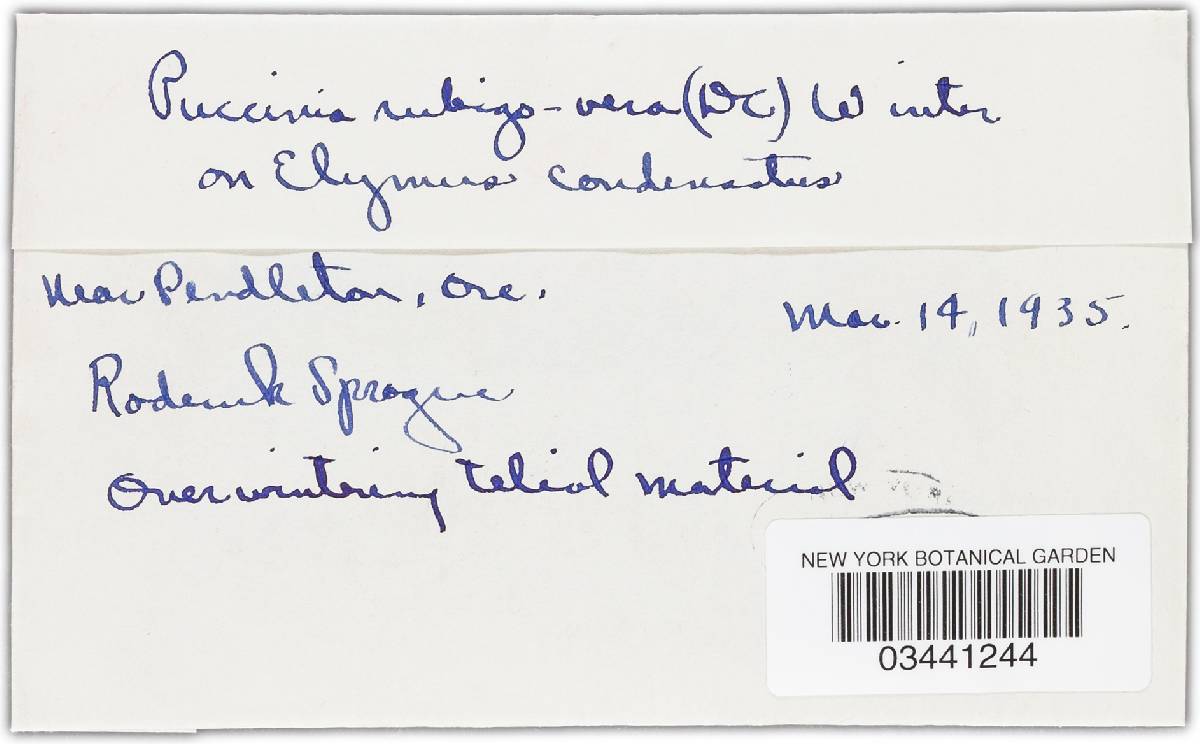 Puccinia rubigo-vera (DC) Winter
on Elymus condensatus
Near Pendleton, Ore.
Mar. 14, 1935.
Roderick Sprague
Overwintering telial material
NEW YORK BOTANICAL GARDEN
03441244